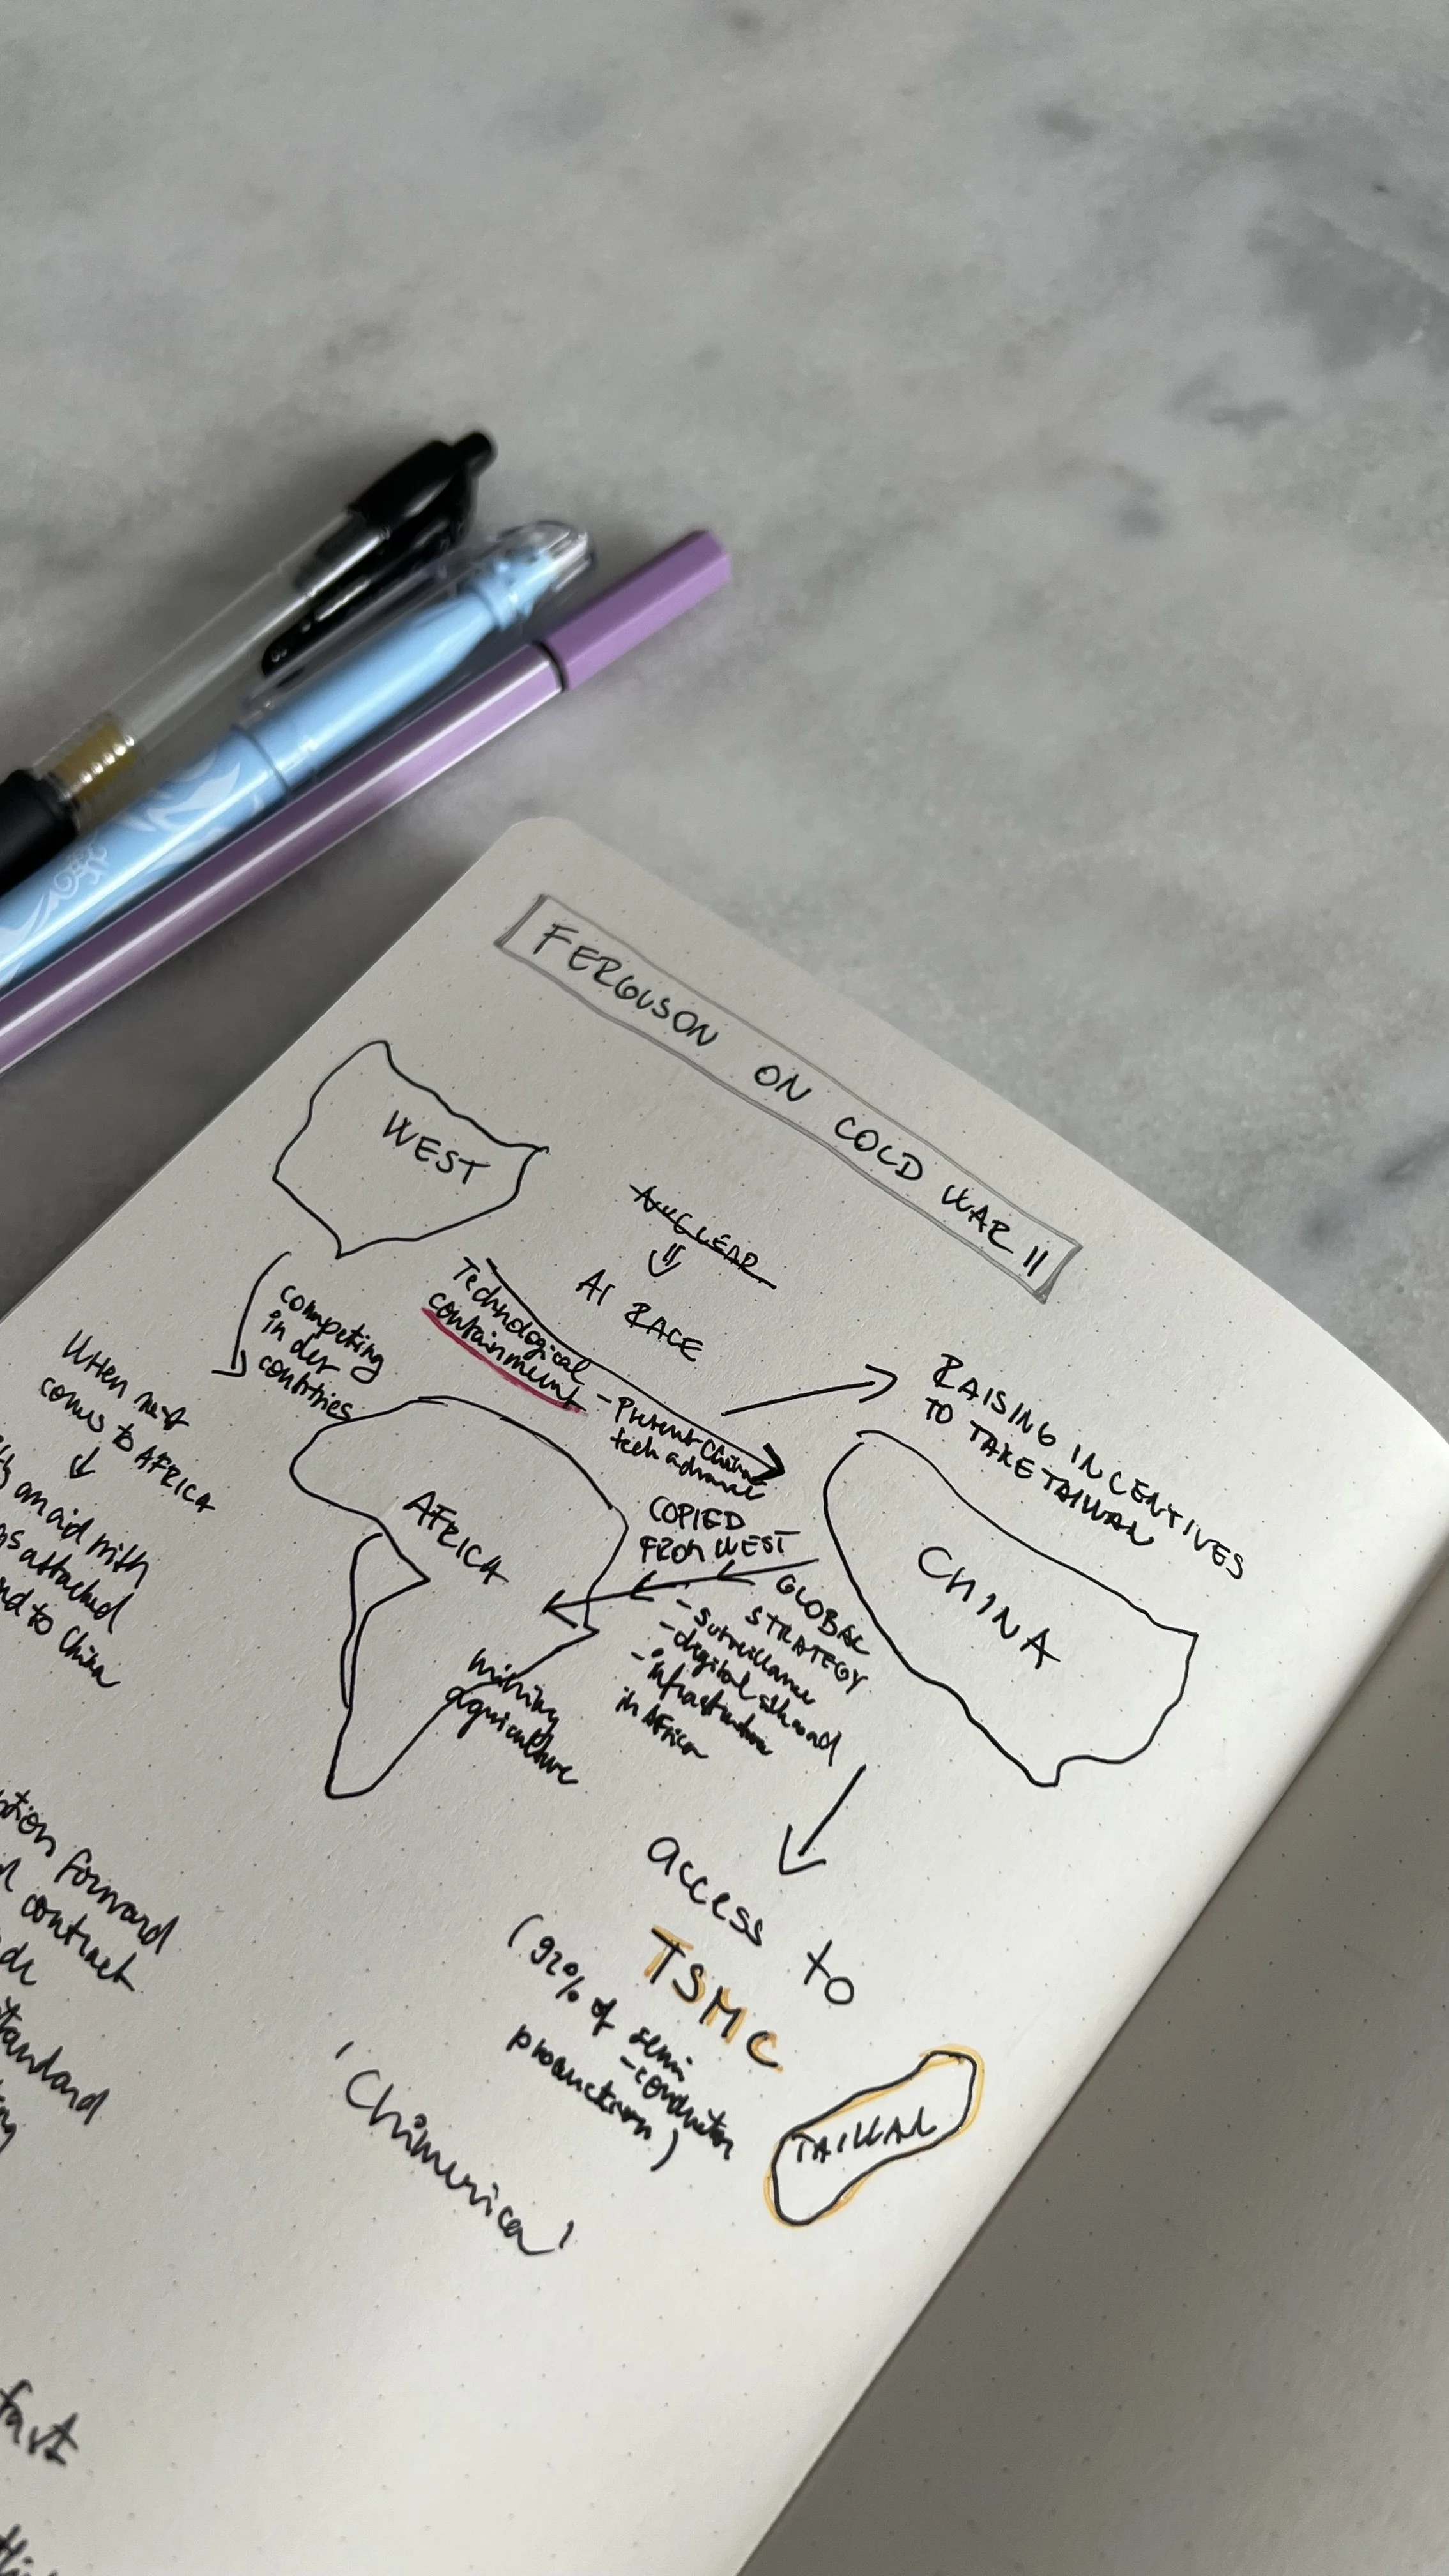 FERGUSON ON COLD WAR II
WEST
NUCLEAR
AI RACE
Technological
containment
- Prevent China
tech advance
RAISING INCENTIVES
TO TAKE TAIWAN
competing
in dev
countries
When
comes to AFRICA
an aid with
attached
to China
AFRICA
mining
agriculture
COPIED
FROM WEST
GLOBAL
STRATEGY
- surveillance
- digital silkroad
- infrastructure
in Africa
CHINA
access to
TSMC
(92% of semi
-conductor
production)
TAIWAN
'Chimerica'
forward
contract